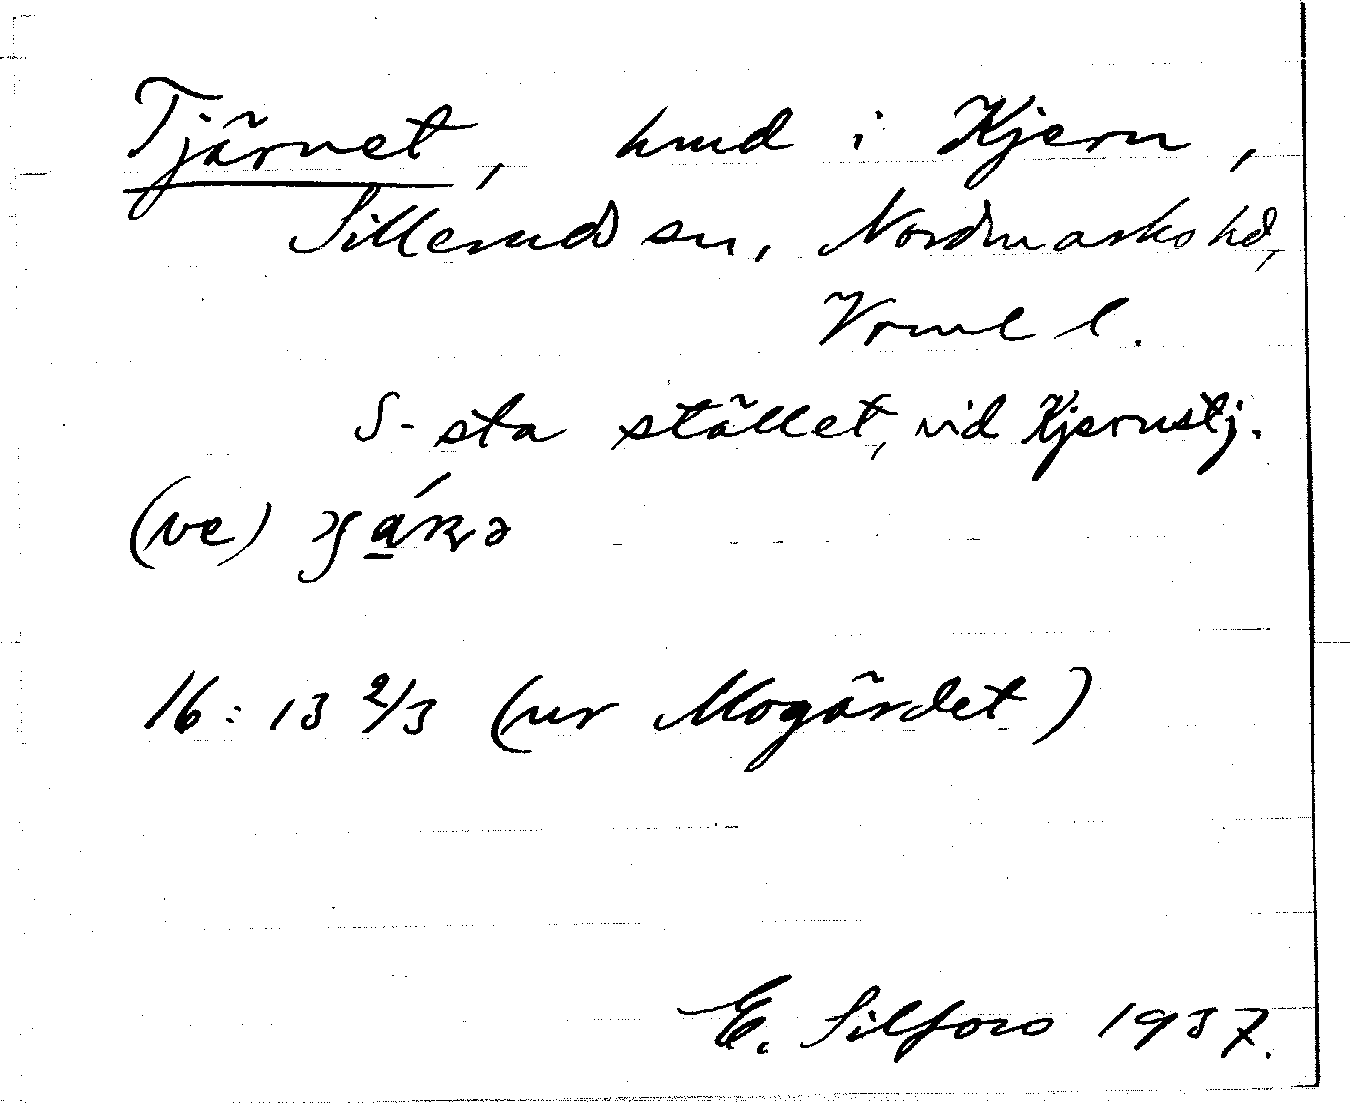 Tjärnet, hmd i Kjern,
Sillerud sn, Nordmarks hd,
Vrml l.
S-sta stället, vid Kjernstj.
(ve)
16:13 2/3 (ur Mogärdet)
E. Silfors 1937.